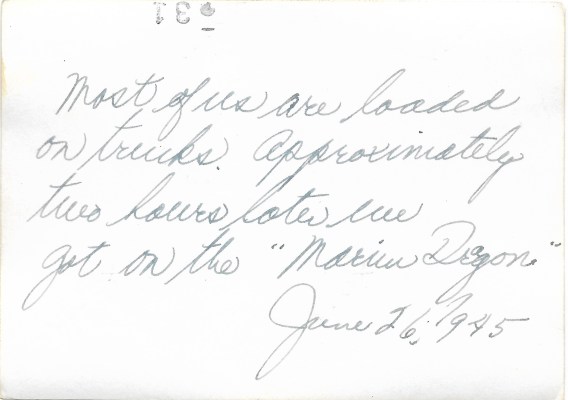 31
Most of us are loaded
on trucks. Approximately
two hours later we
got on the "Marine Dragon."
June 26, 1945